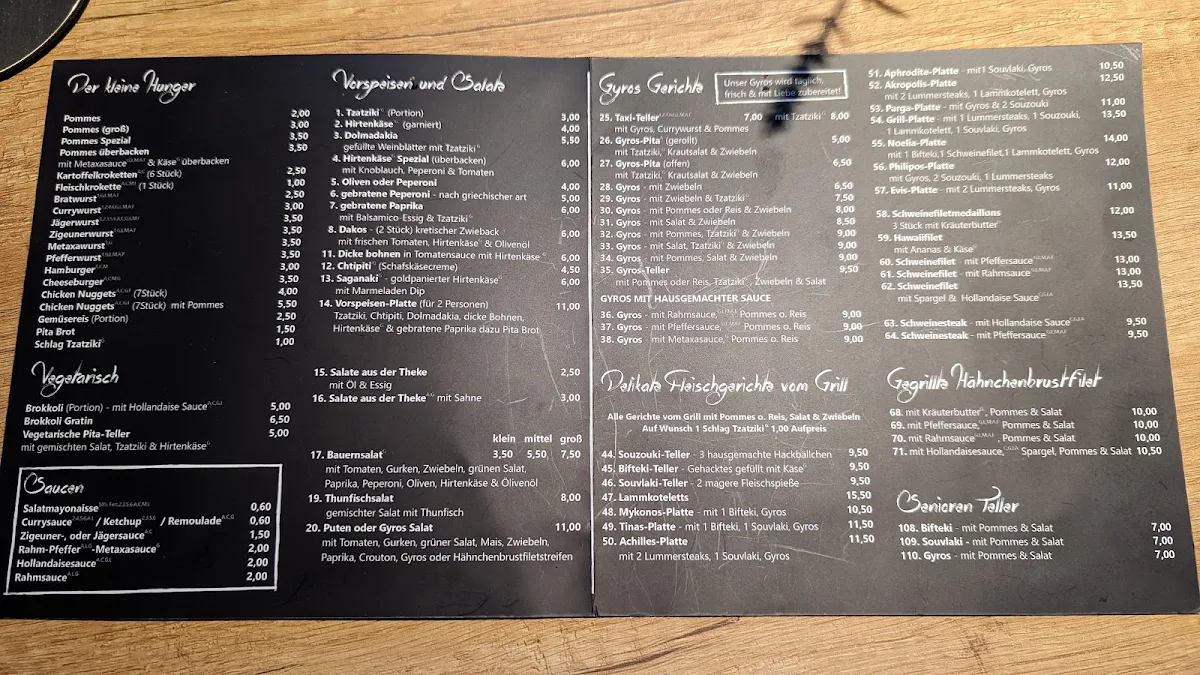 Der kleine Hunger
Pommes 2,00
Pommes (groß) 3,00
Pommes Spezial 3,50
Pommes überbacken
mit Metaxasauce & Käse überbacken
Kartoffelkroketten (6 Stück) 2,50
Fleischkrokette (1 Stück) 1,00
Bratwurst 2,50
Currywurst 3,00
Jägerwurst 3,50
Zigeunerwurst 3,50
Metaxawurst 3,50
Pfefferwurst 3,50
Hamburger 3,00
Cheeseburger 3,50
Chicken Nuggets (7Stück) 4,00
Chicken Nuggets (7Stück) mit Pommes 5,50
Gemüsereis (Portion) 2,50
Pita Brot 1,50
Schlag Tzatziki 1,00
Vegetarisch
Brokkoli (Portion) - mit Hollandaise Sauce 5,00
Brokkoli Gratin 6,50
Vegetarische Pita-Teller 5,00
mit gemischten Salat, Tzatziki & Hirtenkäse
Saucen
Salatmayonaisse 0,60
Currysauce / Ketchup / Remoulade 0,60
Zigeuner-, oder Jägersauce 1,50
Rahm-Pfeffer-Metaxasauce 2,00
Hollandaisesauce 2,00
Rahmsauce 2,00
Vorspeisen und Salate
1. Tzatziki (Portion) 3,00
2. Hirtenkäse (garniert) 4,00
3. Dolmadakia 5,50
gefüllte Weinblätter mit Tzatziki
4. Hirtenkäse Spezial (überbacken) 6,00
mit Knoblauch, Peperoni & Tomaten
5. Oliven oder Peperoni 4,00
6. gebratene Peperoni - nach griechischer art 5,00
7. gebratene Paprika 6,00
mit Balsamico-Essig & Tzatziki
8. Dakos - (2 Stück) kretischer Zwieback 6,00
mit frischen Tomaten, Hirtenkäse & Olivenöl
11. Dicke bohnen in Tomatensauce mit Hirtenkäse 6,00
12. Chtipiti (Schafskäsecreme) 4,50
13. Saganaki - goldpanierter Hirtenkäse 6,00
mit Marmeladen Dip
14. Vorspeisen-Platte (für 2 Personen) 11,00
Tzatziki, Chtipiti, Dolmadakia, dicke Bohnen,
Hirtenkäse & gebratene Paprika dazu Pita Brot
15. Salate aus der Theke 2,50
mit Öl & Essig
16. Salate aus der Theke mit Sahne 3,00
klein mittel groß
17. Bauernsalat 3,50 5,50 7,50
mit Tomaten, Gurken, Zwiebeln, grünen Salat,
Paprika, Peperoni, Oliven, Hirtenkäse & Olivenöl
19. Thunfischsalat 8,00
gemischter Salat mit Thunfisch
20. Puten oder Gyros Salat 11,00
mit Tomaten, Gurken, grüner Salat, Mais, Zwiebeln,
Paprika, Crouton, Gyros oder Hähnchenbrustfiletstreifen
Gyros Gerichte
Unser Gyros wird täglich,
frisch & mit Liebe zubereitet!
25. Taxi-Teller 7,00 mit Tzatziki 8,00
mit Gyros, Currywurst & Pommes
26. Gyros-Pita (gerollt) 5,00
mit Tzatziki, Krautsalat & Zwiebeln
27. Gyros-Pita (offen) 6,50
mit Tzatziki, Krautsalat & Zwiebeln
28. Gyros - mit Zwiebeln 6,50
29. Gyros - mit Zwiebeln & Tzatziki 7,50
30. Gyros - mit Pommes oder Reis & Zwiebeln 8,00
31. Gyros - mit Salat & Zwiebeln 8,50
32. Gyros - mit Pommes, Tzatziki & Zwiebeln 9,00
33. Gyros - mit Salat, Tzatziki & Zwiebeln 9,00
34. Gyros - mit Pommes, Salat & Zwiebeln 9,00
35. Gyros-Teller 9,50
mit Pommes oder Reis, Tzatziki, Zwiebeln & Salat
GYROS MIT HAUSGEMACHTER SAUCE
36. Gyros - mit Rahmsauce, Pommes o. Reis 9,00
37. Gyros - mit Pfeffersauce, Pommes o. Reis 9,00
38. Gyros - mit Metaxasauce, Pommes o. Reis 9,00
Delikate Fleischgerichte vom Grill
Alle Gerichte vom Grill mit Pommes o. Reis, Salat & Zwiebeln
Auf Wunsch 1 Schlag Tzatziki 1,00 Aufpreis
44. Souzouki-Teller - 3 hausgemachte Hackbällchen 9,50
45. Bifteki-Teller - Gehacktes gefüllt mit Käse 9,50
46. Souvlaki-Teller - 2 magere Fleischspieße 9,50
47. Lammkoteletts 15,50
48. Mykonos-Platte - mit 1 Bifteki, Gyros 10,50
49. Tinas-Platte - mit 1 Bifteki, 1 Souvlaki, Gyros 11,50
50. Achilles-Platte 11,50
mit 2 Lummersteaks, 1 Souvlaki, Gyros
51. Aphrodite-Platte - mit1 Souvlaki, Gyros 10,50
52. Akropolis-Platte 12,50
mit 2 Lummersteaks, 1 Lammkotelett, Gyros
53. Parga-Platte - mit Gyros & 2 Souzouki 11,00
54. Grill-Platte - mit 1 Lummersteaks, 1 Souzouki, 13,50
1 Lammkotelett, 1 Souvlaki, Gyros
55. Noelia-Platte 14,00
mit 1 Bifteki,1 Schweinefilet,1 Lammkotelett, Gyros
56. Philipos-Platte 12,00
mit Gyros, 2 Souzouki, 1 Lummersteaks
57. Evis-Platte - mit 2 Lummersteaks, Gyros 11,00
58. Schweinefiletmedaillons 12,00
3 Stück mit Kräuterbutter
59. Hawaiifilet 13,50
mit Ananas & Käse
60. Schweinefilet - mit Pfeffersauce 13,00
61. Schweinefilet - mit Rahmsauce 13,00
62. Schweinefilet 13,50
mit Spargel & Hollandaise Sauce
63. Schweinesteak - mit Hollandaise Sauce 9,50
64. Schweinesteak - mit Pfeffersauce 9,50
Gegrillte Hähnchenbrustfilet
68. mit Kräuterbutter, Pommes & Salat 10,00
69. mit Pfeffersauce, Pommes & Salat 10,00
70. mit Rahmsauce, Pommes & Salat 10,00
71. mit Hollandaisesauce, Spargel, Pommes & Salat 10,50
Senioren Teller
108. Bifteki - mit Pommes & Salat 7,00
109. Souvlaki - mit Pommes & Salat 7,00
110. Gyros - mit Pommes & Salat 7,00